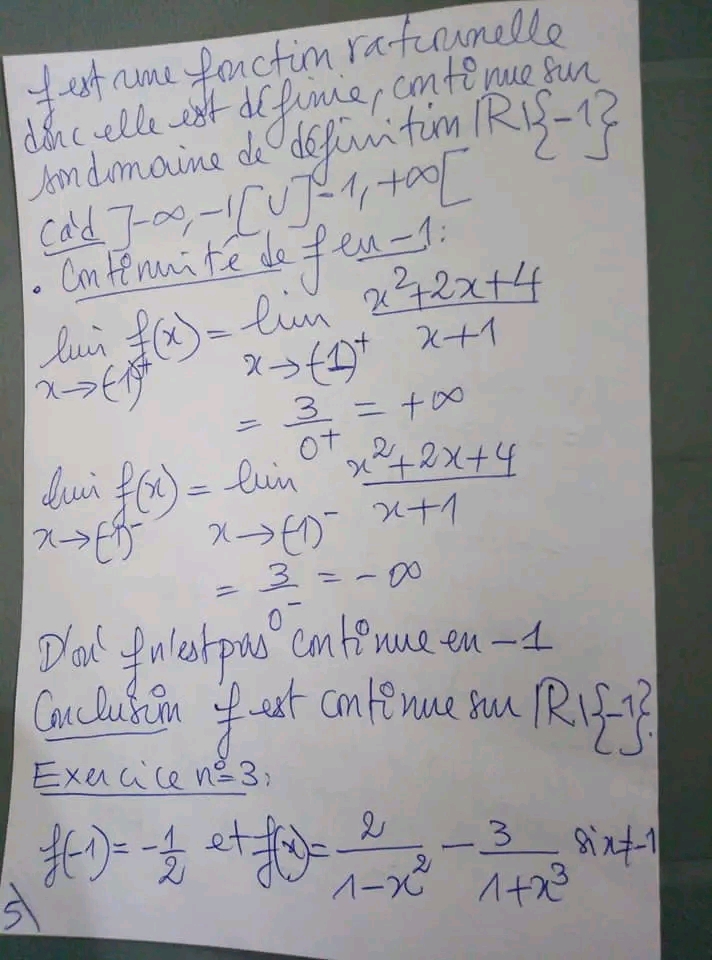 f est une fonction rationnelle
donc elle est définie, continue sur
son domaine de définition IR\{-1}
cad ]-∞, -1[ ∪ ]-1, +∞[
• Continuité de f en -1:
lim f(x) = lim x²+2x+4 / x+1
x→(-1)⁺ x→(-1)⁺
= 3/0⁺ = +∞
lim f(x) = lim x²+2x+4 / x+1
x→(-1)⁻ x→(-1)⁻
= 3/0⁻ = -∞
D'où f n'est pas continue en -1
Conclusion f est continue sur IR\{-1}.
Exercice n°=3:
f(-1) = -1/2 et f(x) = 2/1-x² - 3/1+x³ si x≠-1
5\